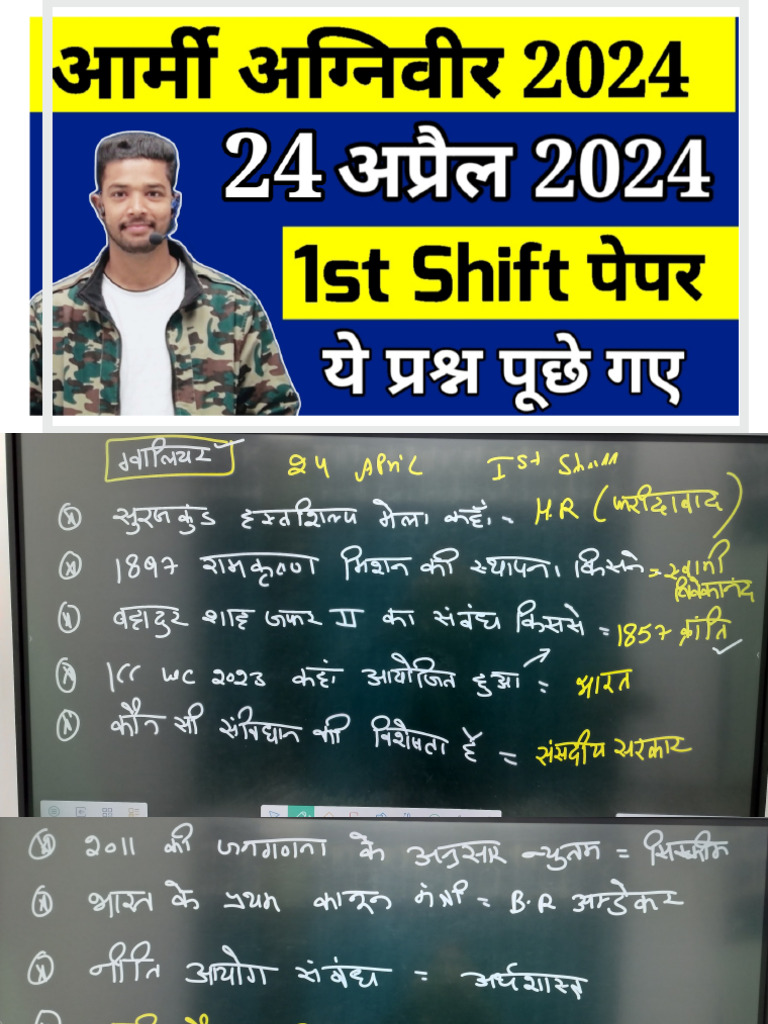 आर्मी अग्निवीर 2024
24 अप्रैल 2024
1st Shift पेपर
ये प्रश्न पूछे गए
ग्वालियर 24 April Ist
सुरजकुंड हस्तशिल्प मेला कहाँ = HR (फरीदाबाद)
1897 रामकृष्ण मिशन की स्थापना किसने = स्वामी
विवेकानंद
बहादुर शाह जफर II का संबंध किससे = 1857 क्रांति
ICC WC 2023 कहां आयोजित हुआ = भारत
कौन सी संविधान की विशेषता है = संसदीय सरकार
2011 की जनगणना के अनुसार न्युतम = सिक्कीम
भारत के प्रथम कानून मंत्री = B.R अम्बेडकर
नीति आयोग संबंध = अर्थशास्त्र